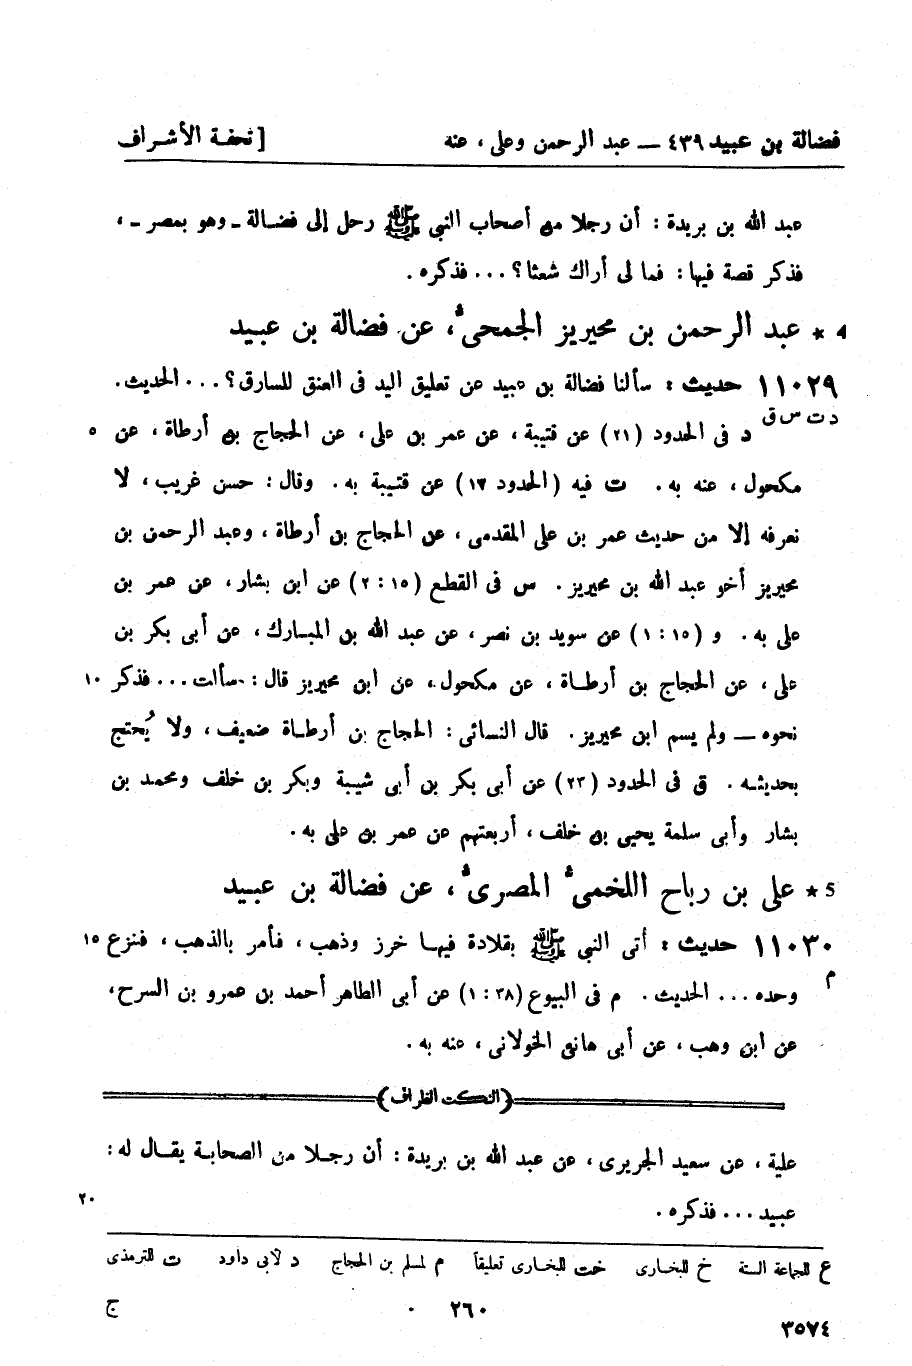 فضالة بن عبيد ٤٣٩ — عبد الرحمن وعلى ، عنه [ تحفة الأشراف
عبد الله بن بريدة : أن رجلا من أصحاب النبي ﷺ رحل إلى فضالة ـ وهو بمصر ـ ،
فذكر قصة فيها : فما لى أراك شعثا ؟ ... فذكره .
4 * عبد الرحمن بن محيريز الجمحى ، عن فضالة بن عبيد
١١٠٢٩ حديث : سألنا فضالة بن عبيد عن تعليق اليد فى العنق للسارق ؟ ... الحديث .
د ت س ق
د فى الحدود (٢١) عن قتيبة ، عن عمر بن على ، عن الحجاج بن أرطاة ، عن ٥
مكحول ، عنه به . ت فيه (الحدود ١٧) عن قتيبة به . وقال : حسن غريب ، لا
نعرفه إلا من حديث عمر بن على المقدمى ، عن الحجاج بن أرطاة ، وعبد الرحمن بن
محيريز أخو عبد الله بن محيريز . س فى القطع (١٥ : ٢) عن ابن بشار ، عن عمر بن
على به . و (١٥ : ١) عن سويد بن نصر ، عن عبد الله بن المبارك ، عن أبى بكر بن
على ، عن الحجاج بن أرطاة ، عن مكحول ، عن ابن محيريز قال : سألت ... فذكر ١٠
نحوه — ولم يسم ابن محيريز . قال النسائى : الحجاج بن أرطاة ضعيف ، ولا يُحتج
بحديثه . ق فى الحدود (٢٣) عن أبى بكر بن أبى شيبة وبكر بن خلف ومحمد بن
بشار وأبى سلمة يحيى بن خلف ، أربعتهم عن عمر بن على به .
5 * على بن رباح اللخمى المصرى ، عن فضالة بن عبيد
١١٠٣٠ حديث : أتى النبي ﷺ بقلادة فيها خرز وذهب ، فأمر بالذهب ، فنزع ١٥
م
وحده ... الحديث . م فى البيوع (٣٨ : ١) عن أبى الطاهر أحمد بن عمرو بن السرح ،
عن ابن وهب ، عن أبى هانئ الخولانى ، عنه به .
(النكت الظراف)
علية ، عن سعيد الجريرى ، عن عبد الله بن بريدة : أن رجلا من الصحابة يقال له :
عبيد ... فذكره . ٢٠
ع للجماعة الستة خ للبخارى خت للبخارى تعليقاً م لمسلم بن الحجاج د لأبى داود ت للترمذى
٢٦٠ ج
٣٥٧٤